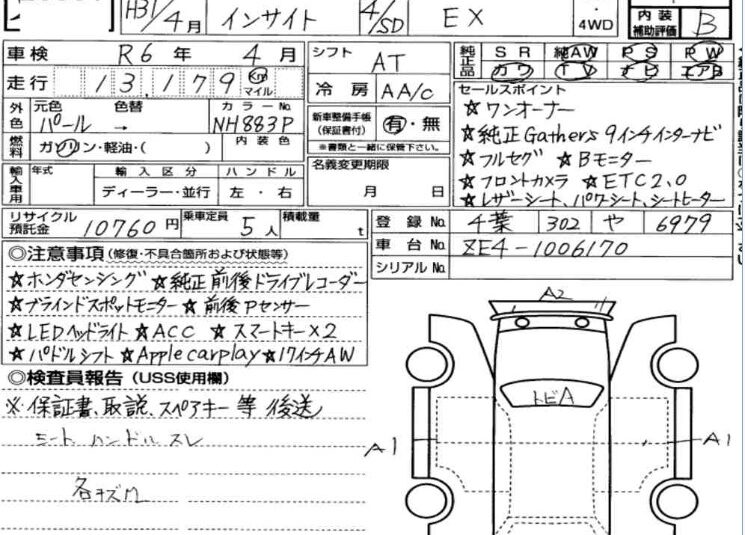 H31/4月 インサイト 4/5D EX ・4WD
内装補助評価 B
車検 R6年 4月 シフト AT 純正品 SR 純AW PS PW
カワ TV ナビ エアB
走行 13,179 km マイル 冷房 AA/C
セールスポイント
外色 元色 色替 カラーNo.
パール → NH883P
内装色
燃料 ガソリン・軽油・( )
新車整備手帳(保証書付) 有・無
※書類と一緒に保管下さい。
名義変更期限
月 日
☆ワンオーナー
☆純正Gathers 9インチインターナビ
☆フルセグ ☆Bモニター
☆フロントカメラ ☆ETC2.0
☆レザーシート、パワーシート、シートヒーター
輸入車用 年式 輸入区分 ハンドル
ディーラー・並行 左・右
リサイクル預託金 10760円 乗車定員 5人 積載量 t
登録No. 千葉 302 や 6979
車台No. ZE4-1006170
シリアルNo.
◎注意事項(修復・不具合箇所および状態等)
☆ホンダセンシング ☆純正前後ドライブレコーダー
☆ブラインドスポットモニター ☆前後Pセンサー
☆LEDヘッドライト ☆ACC ☆スマートキー×2
☆パドルシフト ☆Apple carplay ☆17インチAW
◎検査員報告(USS使用欄)
※保証書、取説、スペアキー等後送
シート ハンドル スレ
各キズ凹
A2
トビA
A1
A1